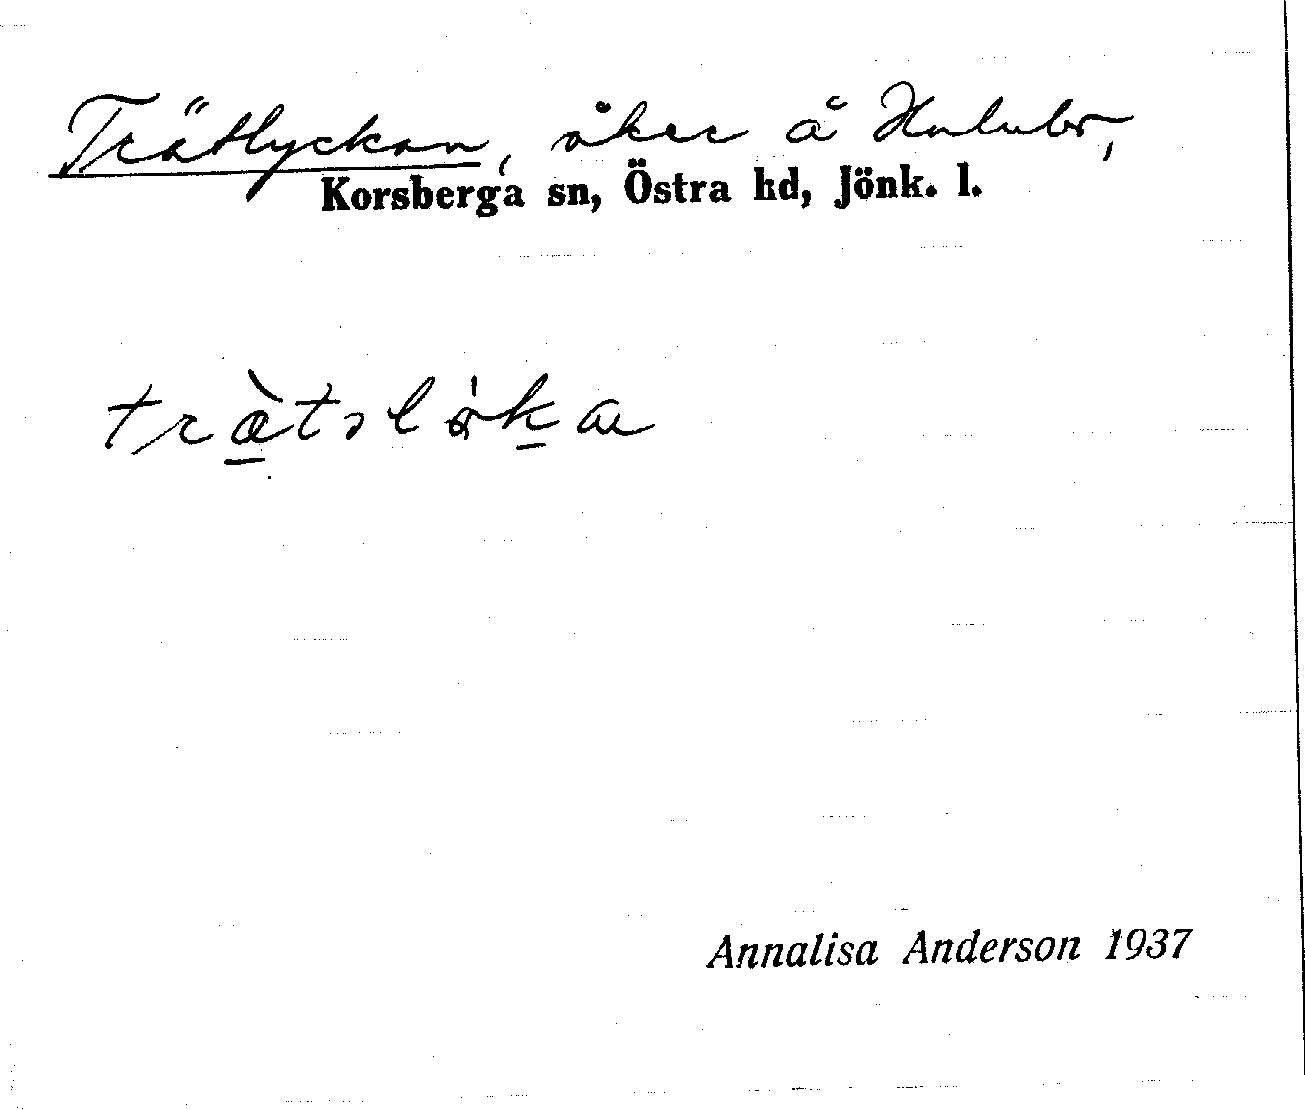 Trätlyckan, åker å Hulubo,
Korsberga sn, Östra hd, Jönk. l.
Annalisa Anderson 1937